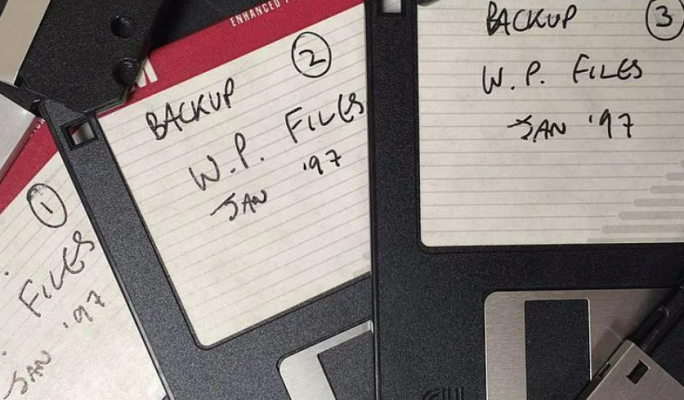 ①
FILES
JAN '97
ENHANCED
BACKUP ②
W.P. FILES
JAN '97
BACKUP ③
W.P. FILES
JAN '97